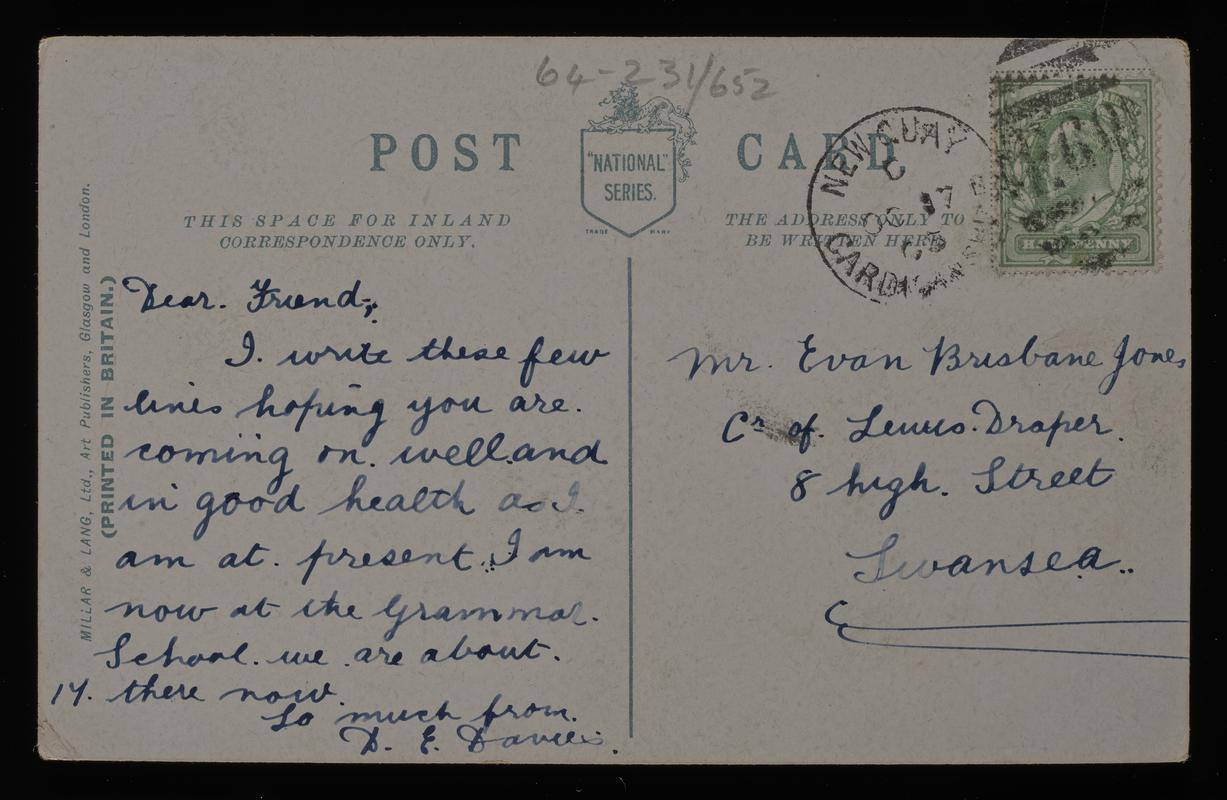 64-231/652
POST CARD
"NATIONAL"
SERIES.
TRADE MARK
THIS SPACE FOR INLAND
CORRESPONDENCE ONLY.
THE ADDRESS ONLY TO
BE WRITTEN HERE
NEW QUAY
C
OC 17
CARDIGANSHIRE
HALFPENNY
MILLAR & LANG, Ltd., Art Publishers, Glasgow and London.
(PRINTED IN BRITAIN.)
Dear. Friend,
I. write these few
lines hoping you are.
coming on. well.and
in good health as I.
am at. present. I am
now at the Grammar.
School. we are about.
17. there now.
So much from.
D. E. Davies.
Mr. Evan Brisbane Jones
Cr of. Lewis. Draper.
8 high. Street
Swansea..